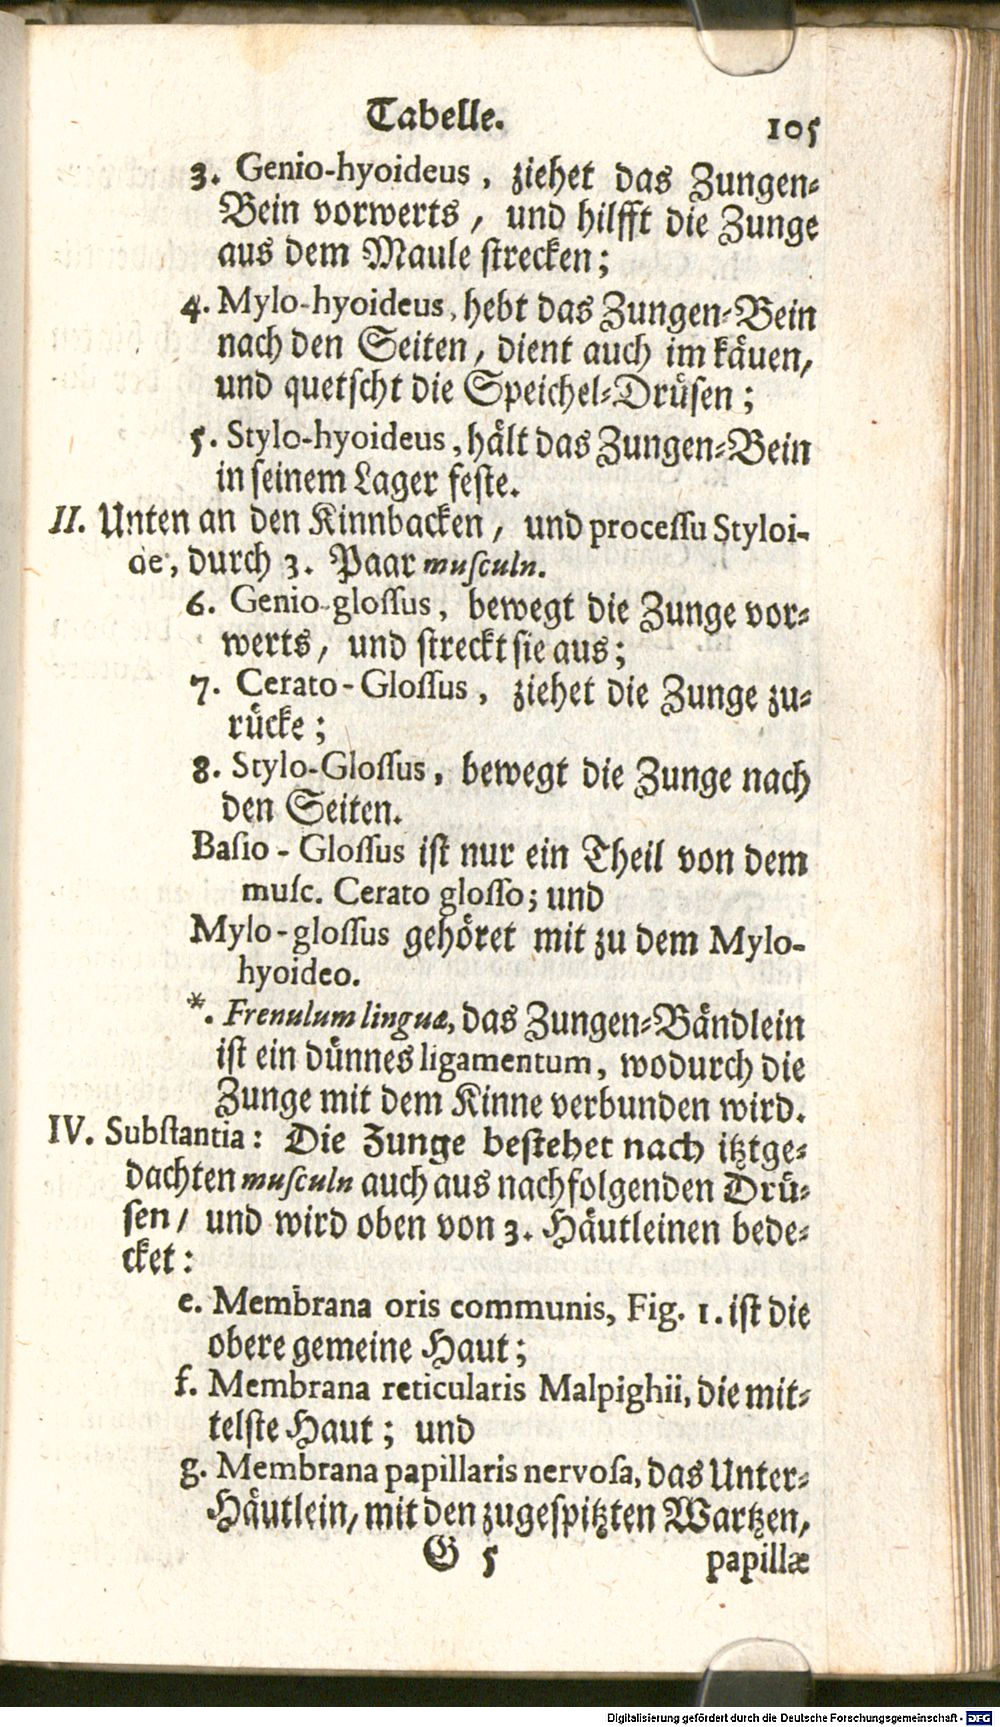 Tabelle. 105
3. Genio-hyoideus, ziehet das Zungen-
Bein vorwerts, und hilfft die Zunge
aus dem Maule strecken;
4. Mylo-hyoideus, hebt das Zungen-Bein
nach den Seiten, dient auch im käuen,
und quetscht die Speichel-Drüsen;
5. Stylo-hyoideus, hält das Zungen-Bein
in seinem Lager feste.
II. Unten an den Kinnbacken, und processu Styloi-
de, durch 3. Paar musculn.
6. Genio-glossus, bewegt die Zunge vor-
werts, und streckt sie aus;
7. Cerato-Glossus, ziehet die Zunge zu-
rücke;
8. Stylo-Glossus, bewegt die Zunge nach
den Seiten.
Basio-Glossus ist nur ein Theil von dem
musc. Cerato glosso; und
Mylo-glossus gehöret mit zu dem Mylo-
hyoideo.
*. Frenulum linguæ, das Zungen-Bändlein
ist ein dünnes ligamentum, wodurch die
Zunge mit dem Kinne verbunden wird.
IV. Substantia: Die Zunge bestehet nach itztge-
dachten musculn auch aus nachfolgenden Drü-
sen, und wird oben von 3. Häutleinen bede-
cket:
e. Membrana oris communis, Fig. 1. ist die
obere gemeine Haut;
f. Membrana reticularis Malpighii, die mit-
telste Haut; und
g. Membrana papillaris nervosa, das Unter-
Häutlein, mit den zugespitzten Wartzen,
G 5 papillæ
Digitalisierung gefördert durch die Deutsche Forschungsgemeinschaft - DFG